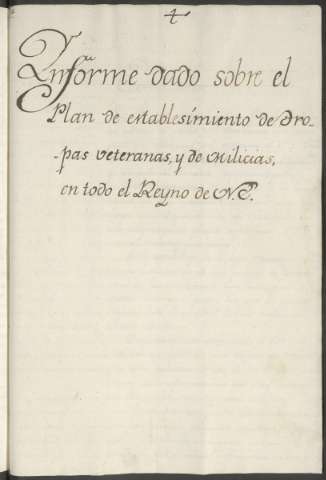 Informe dado sobre el
Plan de establesimiento de tro-
-pas veteranas, y de Milicias,
en todo el Reyno de N. E.